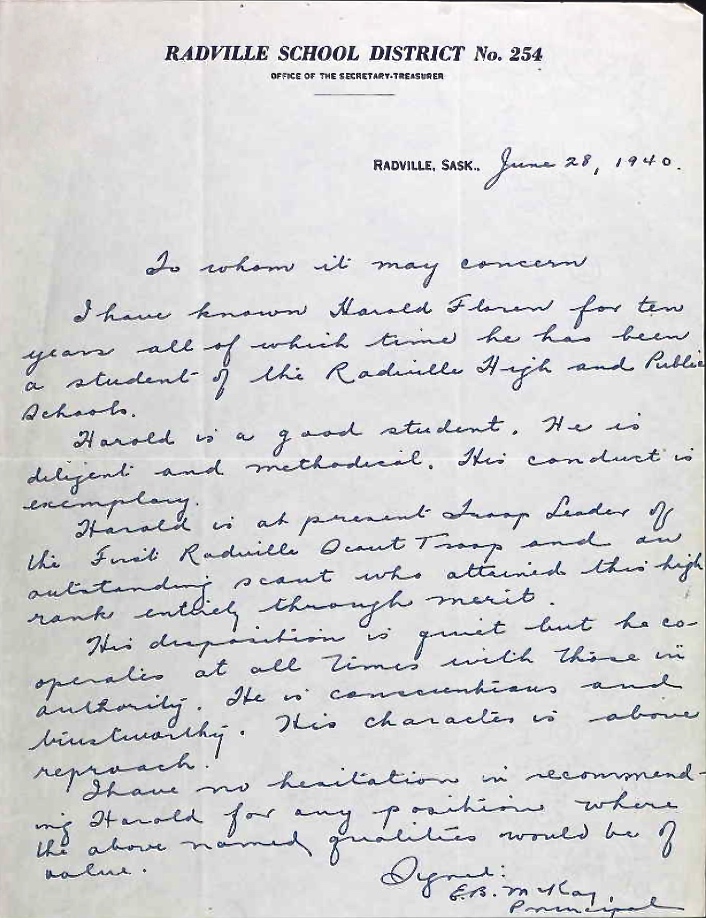 RADVILLE SCHOOL DISTRICT No. 254
OFFICE OF THE SECRETARY-TREASURER
RADVILLE, SASK., June 28, 1940.
To whom it may concern
I have known Harold Floren for ten
years all of which time he has been
a student of the Radville High and Public
Schools.
Harold is a good student. He is
diligent and methodical. His conduct is
exemplary.
Harold is at present Troop Leader of
the First Radville Scout Troop and an
outstanding scout who attained this high
rank entirely through merit.
His disposition is quiet but he co-
operates at all times with those in
authority. He is conscientious and
trustworthy. His character is above
reproach.
I have no hesitation in recommend-
ing Harold for any position where
the above named qualities would be of
value.
Signed:
E.B. McKay,
Principal